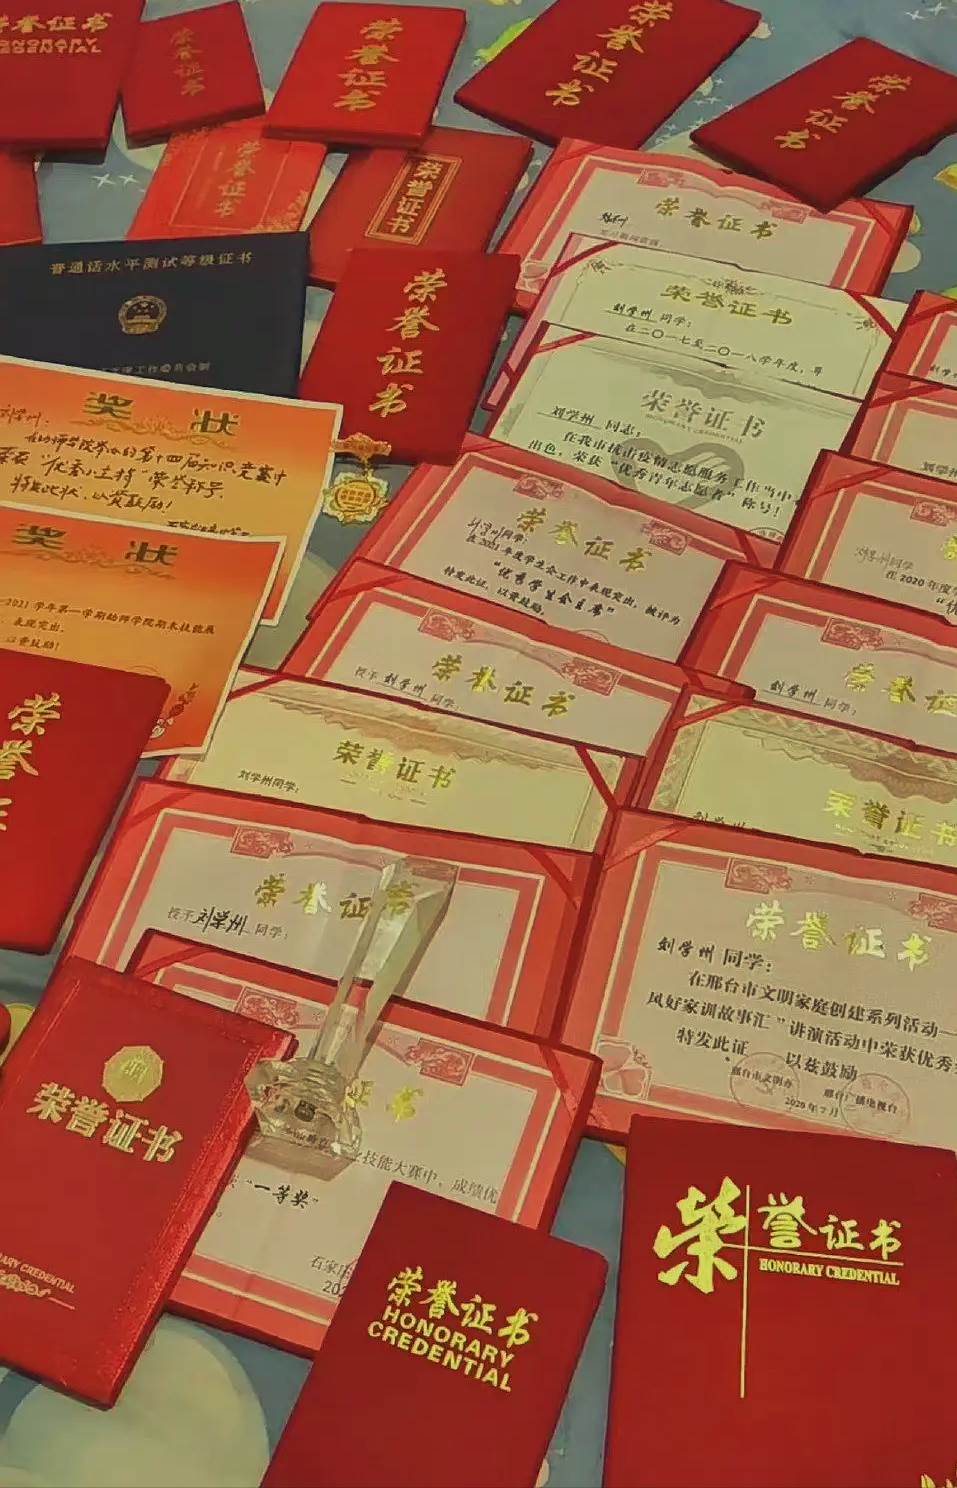 荣誉证书
HONORARY
CREDENTIAL
荣誉证书
荣誉证书
荣誉证书
荣誉证书
荣誉证书
荣誉证书
荣誉证书
普通话水平测试等级证书
荣誉证书
荣誉证书
刘学州 同学:
在二〇一七至二〇一八学年度,
荣誉证书
HONORARY CREDENTIAL
刘学州 同志:
在我市抗击疫情志愿服务工作当中
出色,荣获“优秀青年志愿者”称号!
奖 状
刘学州:
第十四届知识竞赛中
荣获“优秀小主持”荣誉称号,
特发此状,以资鼓励!
奖 状
2021学年第一学期幼师学院期末技能展
表现突出,
以资鼓励!
荣誉证书
刘学州同学:
在2021年度学生会工作中表现突出,被评为
“优秀学生会主席”
特发此证,以资鼓励。
刘学州
刘学州同学
在2020年度
荣誉证书
授予 刘学州 同学:
荣誉证
刘学州 同学:
荣誉证书
刘学州同学:
荣誉证书
荣誉
荣誉证书
授予 刘学州 同学:
荣誉证书
刘学州 同学:
在邢台市文明家庭创建系列活动—
风好家训故事汇”讲演活动中荣获优秀
特发此证 以兹鼓励
邢台市文明办 邢台广播电视台
2020年7月
证书
技能大赛中,成绩优
“一等奖”
石家庄
202
荣誉证书
HONORARY CREDENTIAL
荣誉证书
HONORARY
CREDENTIAL
荣誉证书
HONORARY CREDENTIAL